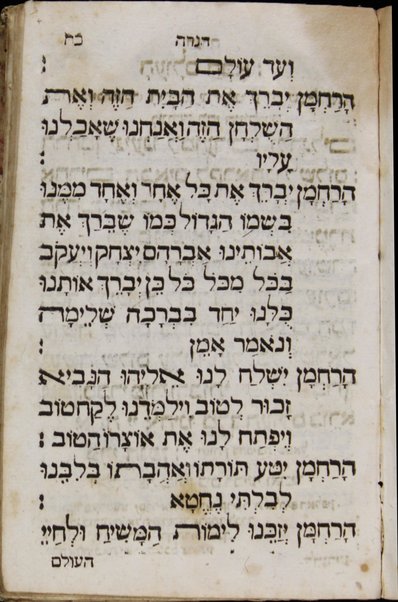 הגדה כח
ועד עולם :
הָרַחְמָן יְבָרֵךְ אֶת הַבַּיִת הַזֶּה וְאֶת
הַשֻּׁלְחָן הַזֶּה וַאֲנַחְנוּ שֶׁאָכַלְנוּ
עָלָיו :
הָרַחְמָן יְבָרֵךְ אֶת כָּל אֶחָד וְאֶחָד מִמֶּנּוּ
בִּשְׁמוֹ הַגָּדוֹל כְּמוֹ שֶׁבֵּרַךְ אֶת
אֲבוֹתֵינוּ אַבְרָהָם יִצְחָק וְיַעֲקֹב
בַּכֹּל מִכֹּל כֹּל כֵּן יְבָרֵךְ אוֹתָנוּ
כֻּלָּנוּ יַחַד בִּבְרָכָה שְׁלֵימָה
וְנֹאמַר אָמֵן :
הָרַחְמָן יִשְׁלַח לָנוּ אֵלִיָּהוּ הַנָּבִיא
זָכוּר לַטּוֹב וִילַמְּדֵנוּ לֶקַח טוֹב
וְיִפְתַּח לָנוּ אֶת אוֹצָרוֹ הַטּוֹב :
הָרַחְמָן יִטַּע תּוֹרָתוֹ וְאַהֲבָתוֹ בְּלִבֵּנוּ
לְבִלְתִּי נֶחֱטָא :
הָרַחְמָן יְזַכֵּנוּ לִימוֹת הַמָּשִׁיחַ וּלְחַיֵּי
העולם